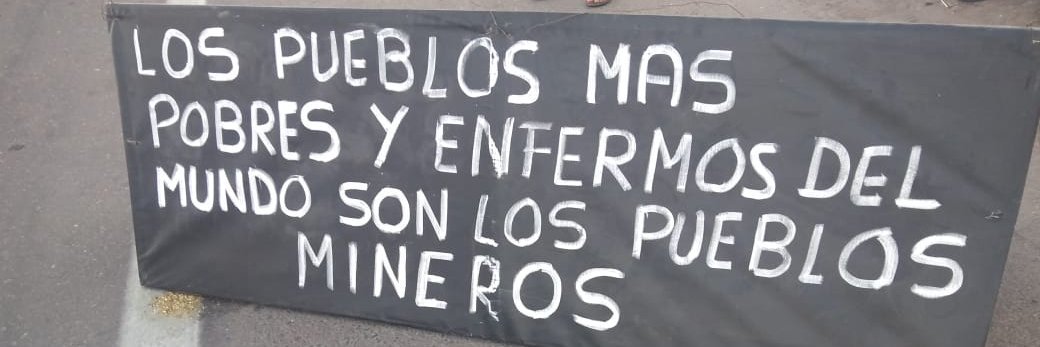 LOS PUEBLOS MAS
POBRES Y ENFERMOS DEL
MUNDO SON LOS PUEBLOS
MINEROS